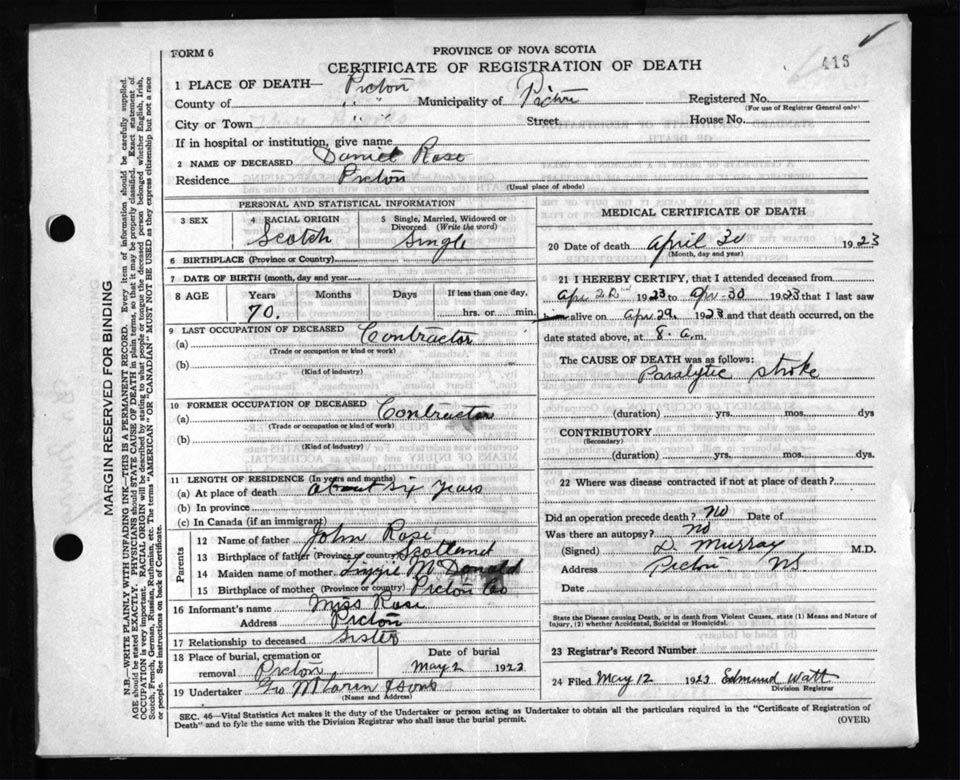 FORM 6
PROVINCE OF NOVA SCOTIA
CERTIFICATE OF REGISTRATION OF DEATH
1 PLACE OF DEATH— Pictou
County of " " Municipality of Pictou Registered No.
(For use of Registrar General only)
City or Town " " Street House No.
If in hospital or institution, give name
2 NAME OF DECEASED Daniel Rose
Residence Pictou
(Usual place of abode)
PERSONAL AND STATISTICAL INFORMATION
3 SEX 4 RACIAL ORIGIN Scotch 5 Single, Married, Widowed or Divorced (Write the word) Single
6 BIRTHPLACE (Province or Country)
7 DATE OF BIRTH (month, day and year)
8 AGE Years 70. Months Days If less than one day, hrs. or min.
9 LAST OCCUPATION OF DECEASED
(a) Contractor
(Trade or occupation or kind or work)
(b)
(Kind of industry)
10 FORMER OCCUPATION OF DECEASED
(a) Contractor
(Trade or occupation or kind of work)
(b)
(Kind of industry)
11 LENGTH OF RESIDENCE (In years and months)
(a) At place of death about six years
(b) In province
(c) In Canada (if an immigrant)
Parents
12 Name of father John Rose
13 Birthplace of father (Province or country) Scotland
14 Maiden name of mother Lizzie McDonald
15 Birthplace of mother (Province or country) Pictou Co
16 Informant's name Miss Rose
Address Pictou
17 Relationship to deceased Sister
18 Place of burial, cremation or removal Pictou Date of burial May 2 1923
19 Undertaker Geo McLaren & Sons
(Name and Address)
MEDICAL CERTIFICATE OF DEATH
20 Date of death April 30 1923
(Month, day and year)
21 I HEREBY CERTIFY, that I attended deceased from
Apr 22nd 1923 to Apr-30 1923 that I last saw
him alive on Apr 29. 1923 and that death occurred, on the
date stated above, at 8. a.m.
The CAUSE OF DEATH was as follows:
Paralytic stroke
(duration) yrs. mos. dys
CONTRIBUTORY
(Secondary)
(duration) yrs. mos. dys.
22 Where was disease contracted if not at place of death?
Did an operation precede death? No Date of
Was there an autopsy? No
(Signed) D Murray M.D.
Address Pictou. NS
Date
State the Disease causing Death, or in death from Violent Causes, state (1) Means and Nature of Injury, (2) whether Accidental, Suicidal or Homicidal.
23 Registrar's Record Number
24 Filed May 12 1923 Edmund Watt
Division Registrar
SEC. 46—Vital Statistics Act makes it the duty of the Undertaker or person acting as Undertaker to obtain all the particulars required in the "Certificate of Registration of
Death" and to fyle the same with the Division Registrar who shall issue the burial permit.
(OVER)
MARGIN RESERVED FOR BINDING
N.B.—WRITE PLAINLY WITH UNFADING INK—THIS IS A PERMANENT RECORD. Every item of information should be carefully supplied.
AGE should be stated EXACTLY. PHYSICIANS should STATE CAUSE OF DEATH in plain terms, so that it may be properly classified. Exact statement of
OCCUPATION is very important. RACIAL ORIGIN will be described by stating to what people or tongue the deceased person belonged whether English, Irish,
Scotch, French, German, Russian, Ruthenian, etc. The terms "AMERICAN" or "CANADIAN" MUST NOT BE USED as they express citizenship but not a race
or people. See instructions on back of Certificate.